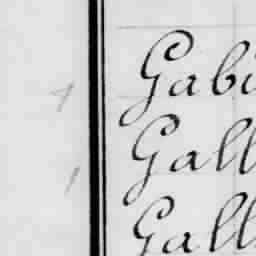 Gabi
Gall
Gall